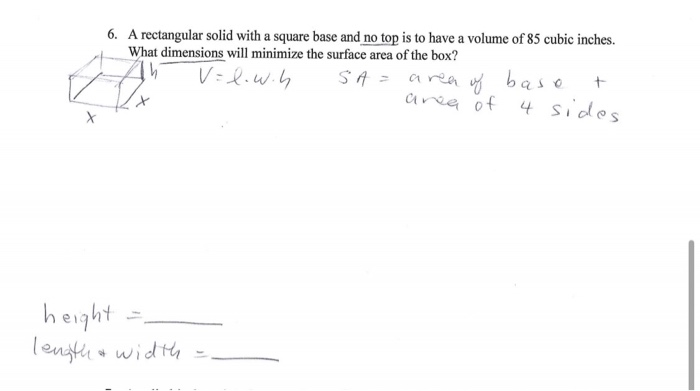 6. A rectangular solid with a square base and no top is to have a volume of 85 cubic inches.
What dimensions will minimize the surface area of the box?
h V = l . w . h SA = area of base +
x area of 4 sides
x
height = ______
length & width = ______